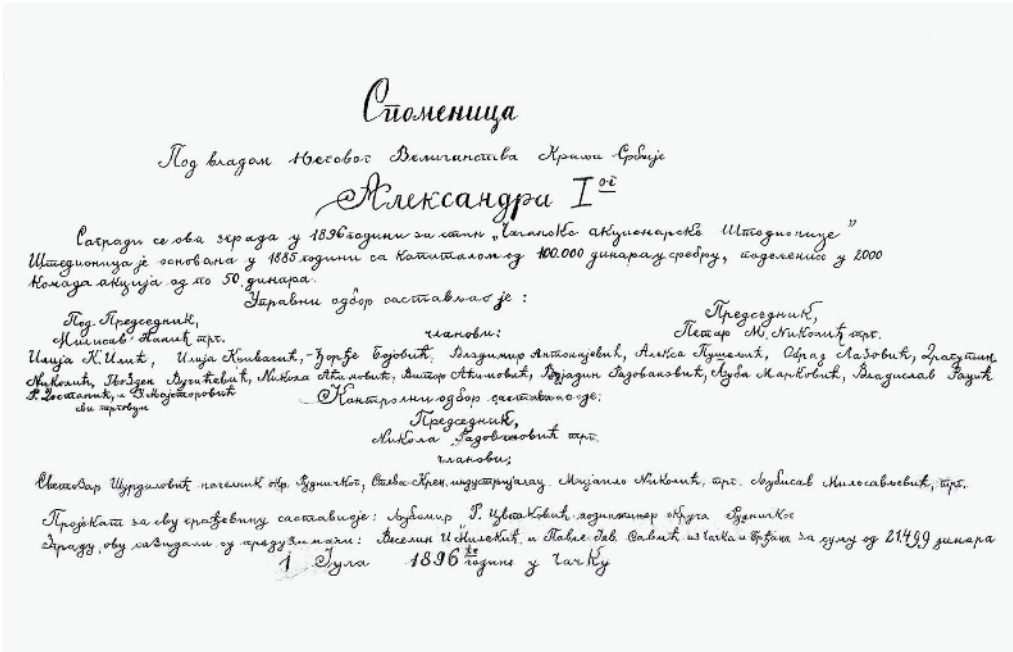 Споменица
Под владом Његовог Величанства Краља Србије
Александра I ог
Сагради се ова зграда у 1896 години за стан „Чачанске акционарске Штедионице"
Штедионица је основана у 1885 години са капиталом од 100.000 динара у сребру, подељених у 2000
комада акција од по 50 динара.
Управни одбор састављао је:
Под. Председник,
Председник,
Милисав трг.
чланови:
Петар М. Николић трг.
Илија К. Илић, Илија Књивагић, Ђорђе Бојовић, Владимир Антонијевић, Алекса Пушелић, Обрад Лазовић, Драгутин
Николић, Гвозден Вучићевић, Никола Акимовић, Витор Акимовић, Вујадин Радовановић, Љуба Марковић, Владислав Рацић
Р. и Мајсторовић
сви трговци
Контролни одбор састављао је:
Председник,
Никола Радовановић трг.
чланови:
Светозар Шурдиловић начелник окр. Рудничког, Стева Крен, индустријалац, Мијаило Николић, трг. Љубисав Милосављевић, трг.
Пројекат за ову грађевину саставио је: Љубомир Р. Цветковић, инжињер округа Рудничког
Зграду ову сазидали су предузимачи: Веселин и Павле Јев. Савић из Чачка и за суму од 21.499 динара
1 Јула 1896 године у Чачку